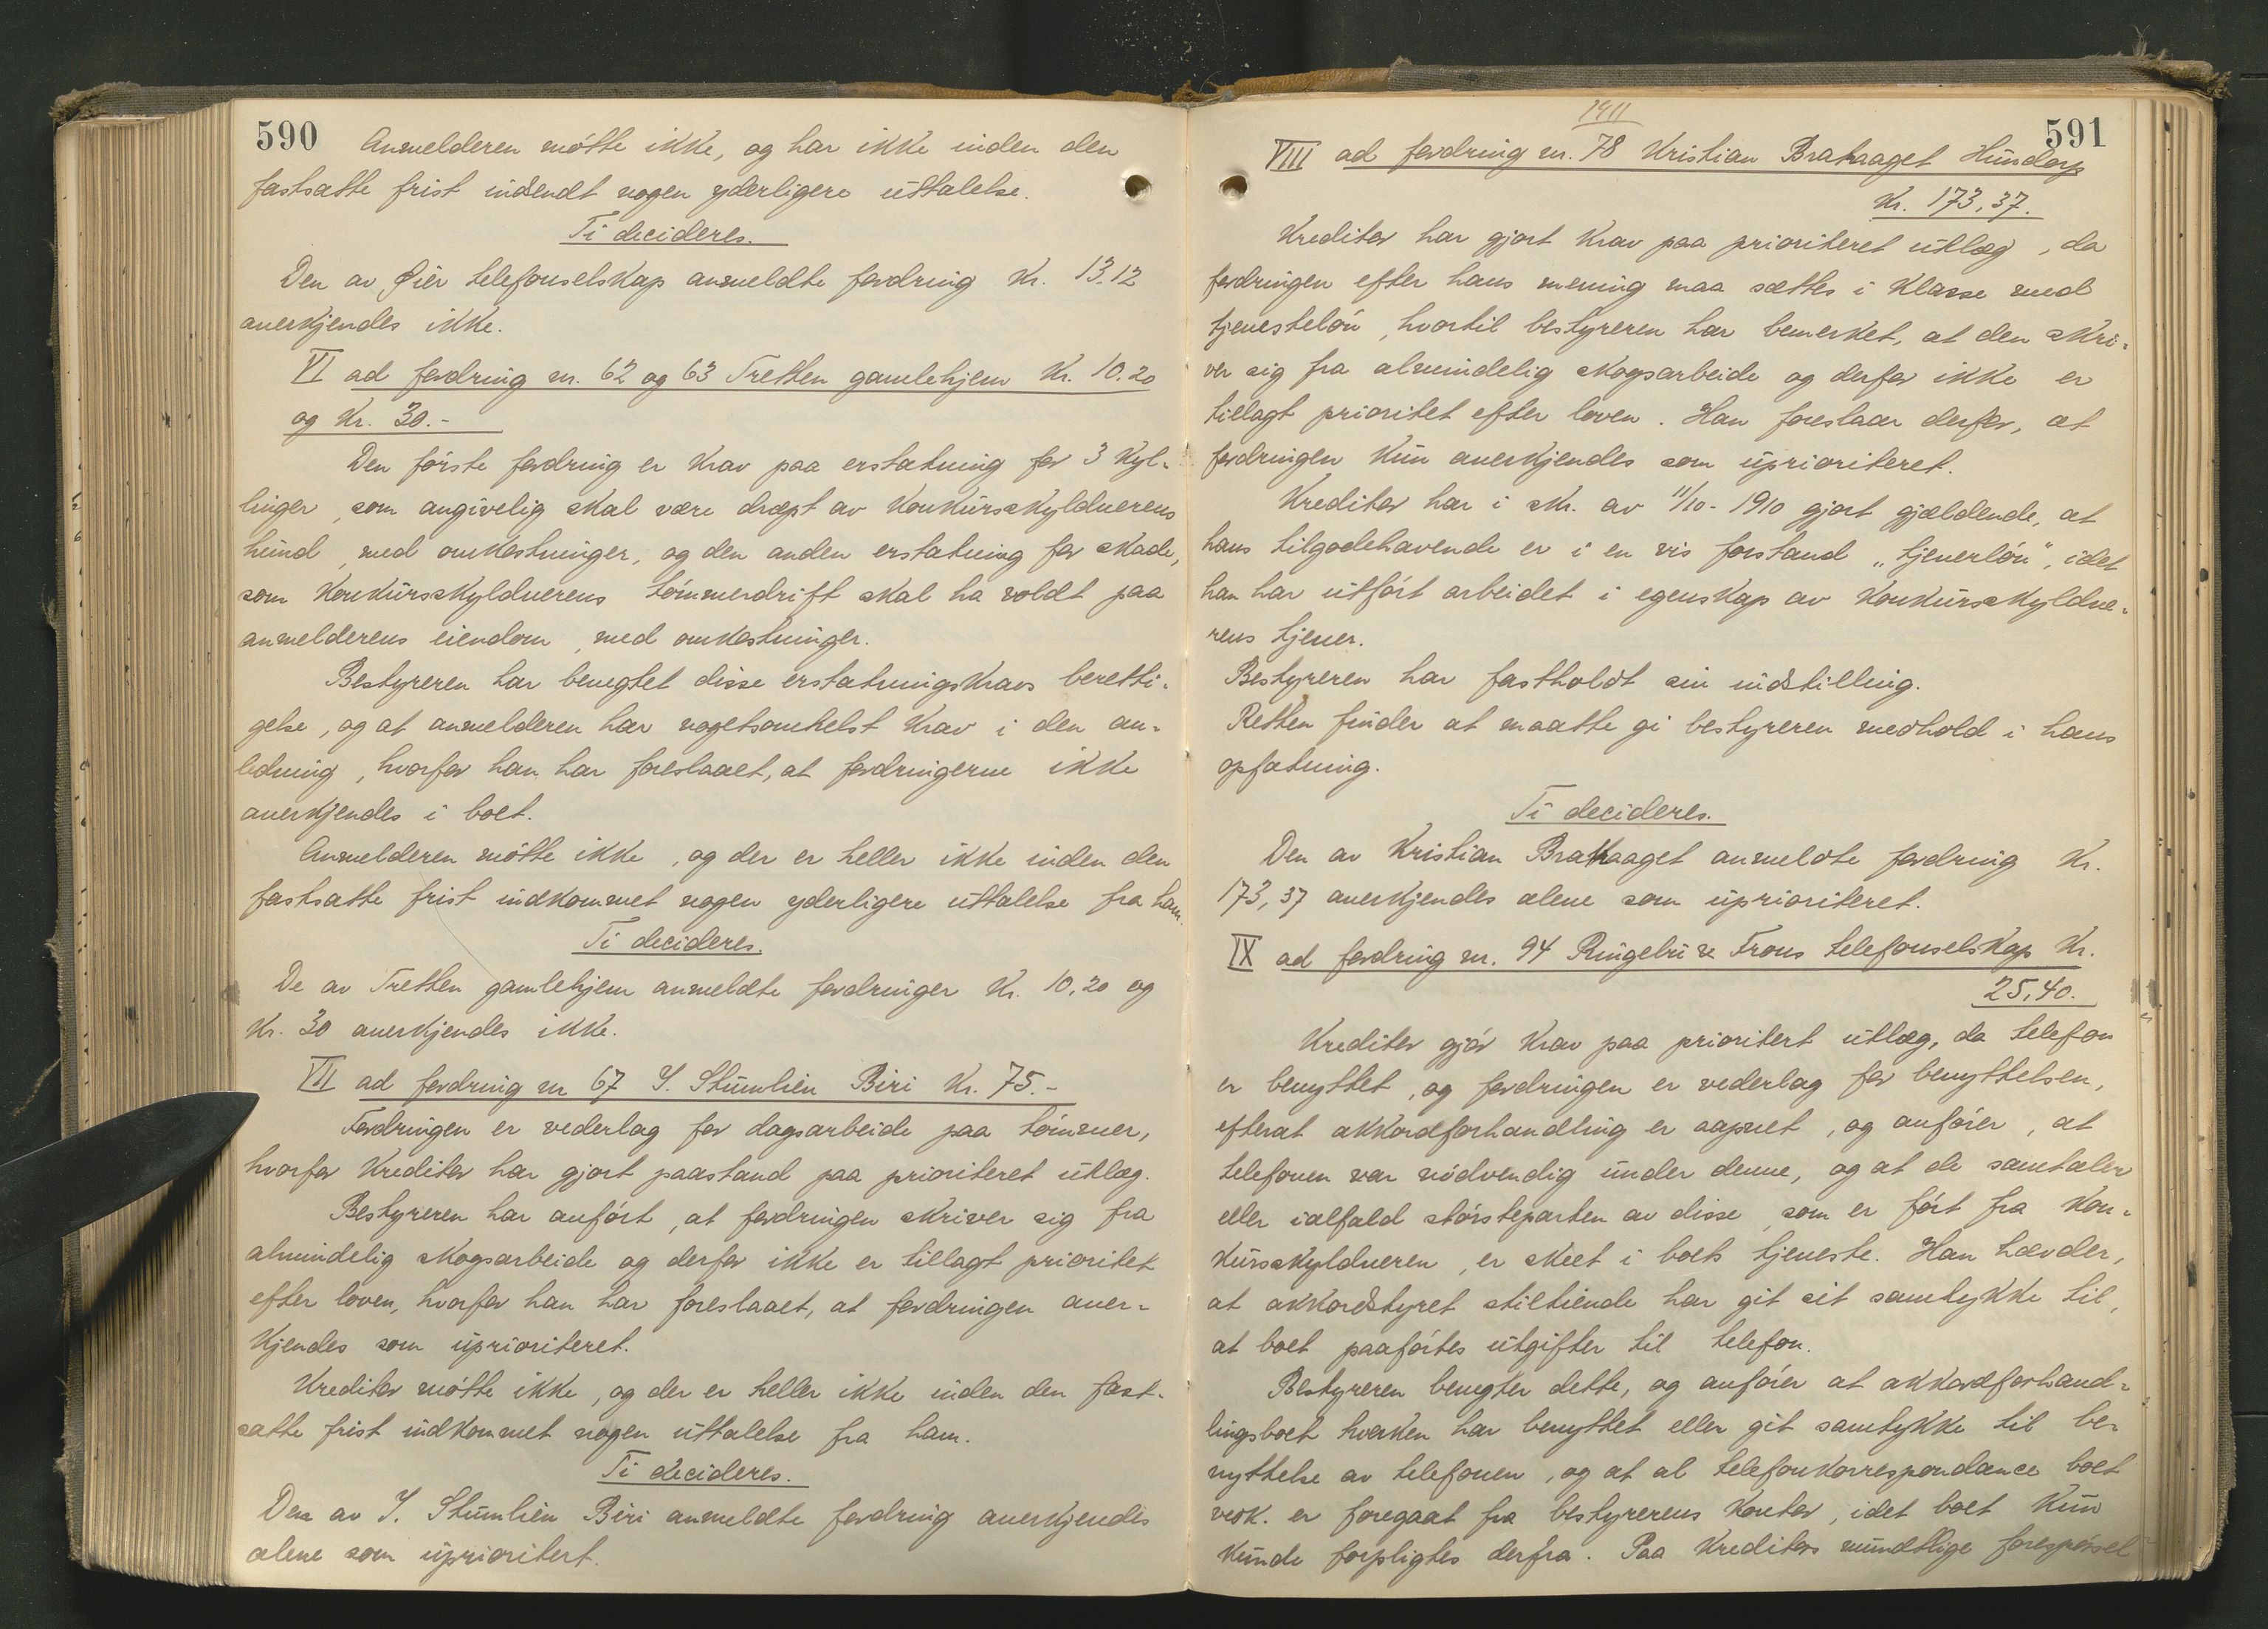 590
Anmelderen møtte ikke, og har ikke inden den
fastsatte frist indsendt nogen yderligere uttalelse.
Ti decideres.
Den av Øier telefonselskap anmeldte fordring Kr. 13.12
anerkjendes ikke.
VI ad fordring nr. 62 og 63 Tretten gamlehjem Kr. 10.20
og Kr. 30.-
Den første fordring er krav paa erstatning for 3 kyl-
linger, som angivelig skal være dræpt av konkursskyldnerens
hund, med omkostninger, og den anden erstatning for skade,
som konkursskyldnerens tømmerdrift skal ha voldt paa
anmelderens eiendom, med omkostninger.
Bestyreren har benegtet disse erstatningskravs beretti-
gelse, og at anmelderen har nogetsomhelst krav i den an-
ledning, hvorfor han har foreslaaet, at fordringerne ikke
anerkjendes i boet.
Anmelderen møtte ikke, og der er heller ikke inden den
fastsatte frist indkommet nogen yderligere uttalelse fra ham.
Ti decideres.
De av Tretten gamlehjem anmeldte fordringer Kr. 10,20 og
Kr. 30 anerkjendes ikke.
VII ad fordring nr 67 J. Stumlien Biri Kr. 75.-
Fordringen er vederlag for dagsarbeide paa tømmer,
hvorfor kreditor har gjort paastand paa prioriteret utlæg.
Bestyreren har anført, at fordringen skriver sig fra
almindelig skogsarbeide og derfor ikke er tillagt prioritet
efter loven, hvorfor han har foreslaaet, at fordringen aner-
kjendes som uprioriteret.
Kreditor møtte ikke, og der er heller ikke inden den fast-
satte frist indkommet nogen uttalelse fra ham.
Ti decideres.
Den av J. Stumlien Biri anmeldte fordring anerkjendes
alene som uprioritert.
1911
591
VIII ad fordring nr. 78 Kristian Brakaaget Hundorp
Kr. 173,37.
Kreditor har gjort krav paa prioriteret utlæg, da
fordringen efter hans mening maa sættes i klasse med
tjenesteløn, hvortil bestyreren har bemerket, at den skri-
ver sig fra almindelig skogsarbeide og derfor ikke er
tillagt prioritet efter loven. Han foreslaar derfor, at
fordringen kun anerkjendes som uprioriteret.
Kreditor har i skr. av 11/10-1910 gjort gjældende, at
hans tilgodehavende er i en vis forstand „tjenerløn", idet
han har utført arbeidet i egenskap av konkursskyldne-
rens tjener.
Bestyreren har fastholdt sin indstilling.
Retten finder at maatte gi bestyreren medhold i hans
opfatning.
Ti decideres.
Den av Kristian Brakaaget anmeldte fordring Kr.
173,37 anerkjendes alene som uprioriteret.
IX ad fordring nr. 94 Ringebu & Frons telefonselskap Kr.
25,40.
Kreditor gjør krav paa prioritert utlæg, da telefon
er benyttet, og fordringen er vederlag for benyttelsen,
efterat akkordforhandling er aapnet, og anfører, at
telefonen var nødvendig under denne, og at de samtaler
eller ialfald størsteparten av disse, som er ført fra kon-
kursskyldneren, er skeet i boets tjeneste. Han hævder,
at akkordstyret stiltiende har git sit samtykke til,
at boet paaførtes utgifter til telefon.
Bestyreren benegter dette, og anfører at akkordforhand-
lingsboet hverken har benyttet eller git samtykke til be-
nyttelse av telefonen, og at al telefonkorrespondance boet
vedk. er foregaat fra bestyrerens kontor, idet boet kun
kunde forpligtes derfra. Paa kreditors mundtlige forespørsel